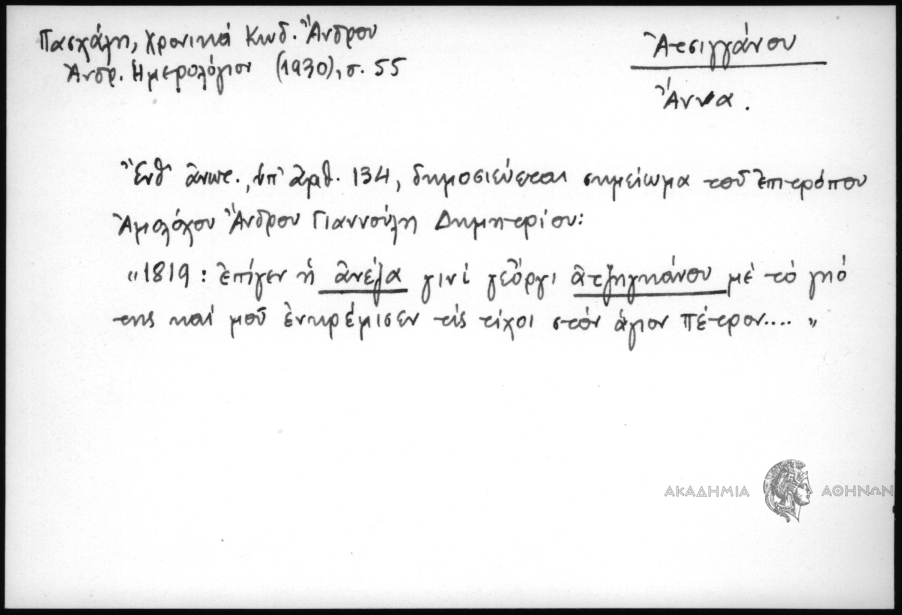 Πασχάλη, Χρονικά Κωδ. Ἄνδρου
Ἀνδρ. Ἡμερολόγιον (1930), σ. 55
Ἀτσιγγάνου
Ἄννα.
Ἔνθ' ἀνωτ., ὑπ' ἀριθ. 134, δημοσιεύεται σημείωμα τοῦ ἐπιτρόπου
Ἀμολόχου Ἄνδρου Γιαννούλη Δημητρίου:
"1819: ἐπίγεν ἡ ἀνέζα γινί γεῶργι ἀτζηγκάνου μέ τό γηό
της καί μοῦ ἐνκρέμισεν τίς τίχοι στόν ἁγιον πέτρον.... "
ΑΚΑΔΗΜΙΑ ΑΘΗΝΩΝ